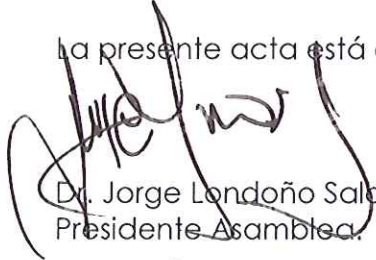 La presente acta está
Dr. Jorge Londoño
Presidente Asamblea.